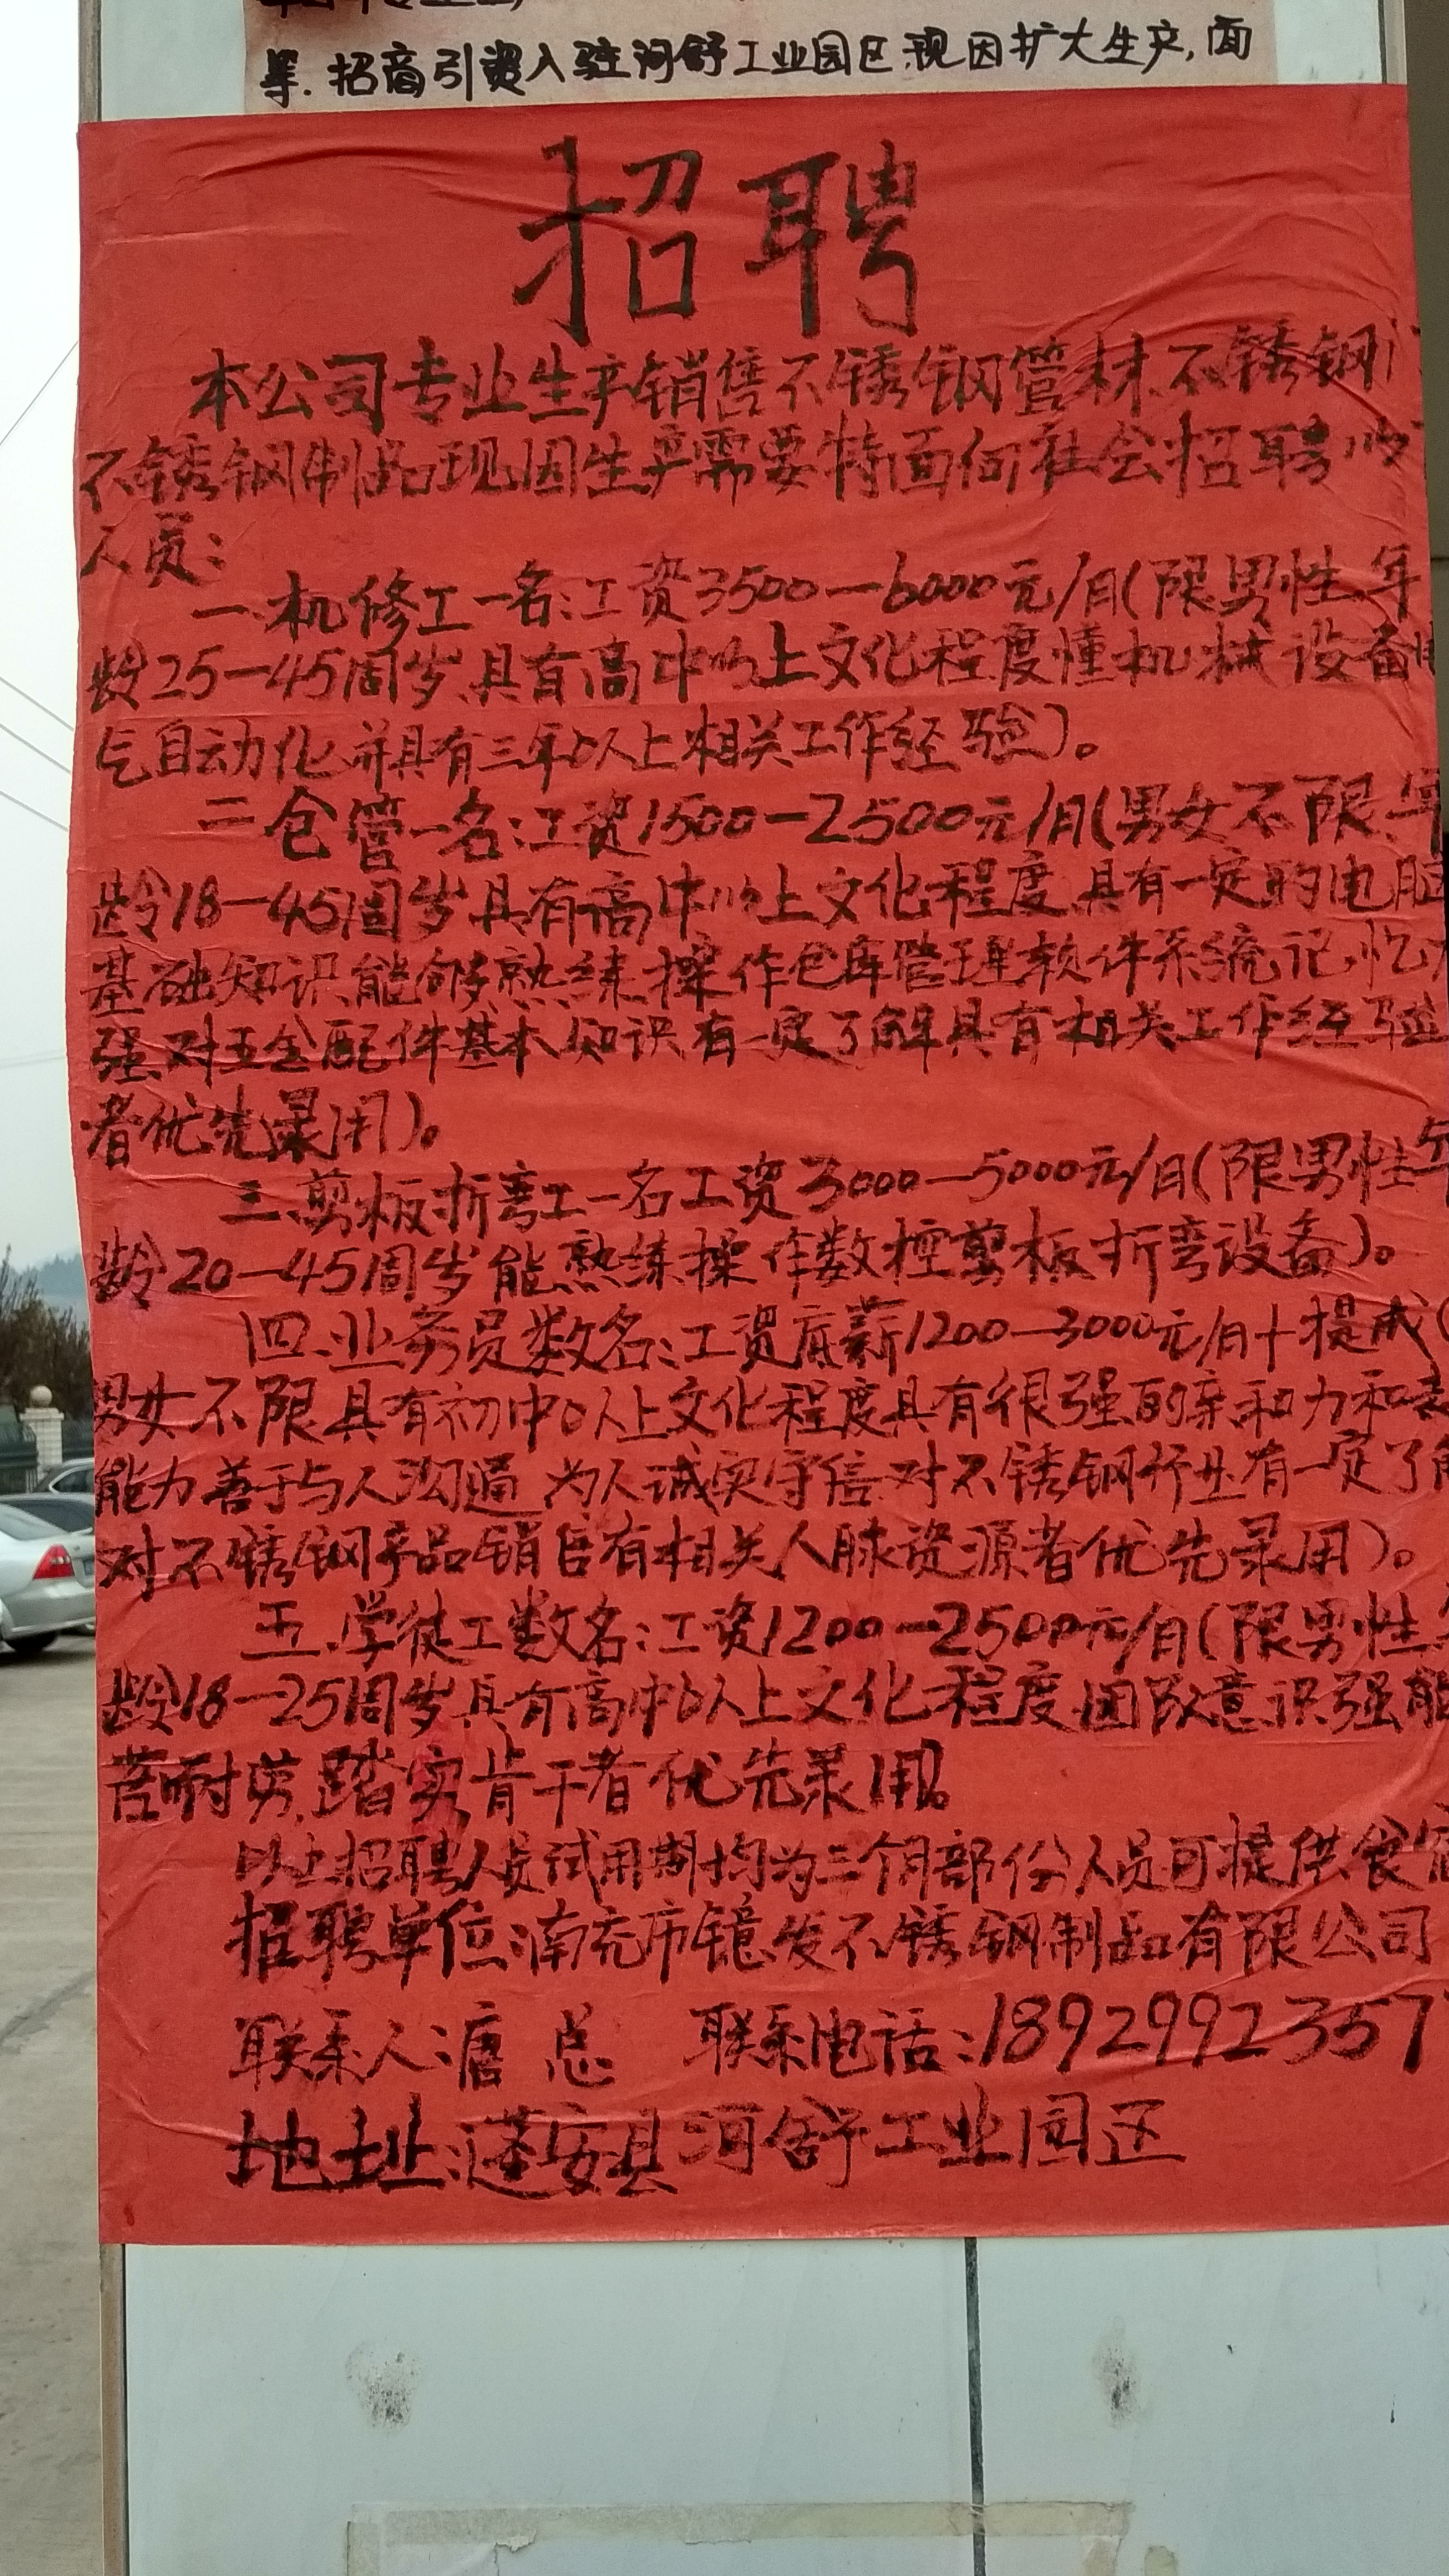 等.招商引资入驻河舒工业园区.现因扩大生产,面
招聘
本公司专业生产销售不锈钢管材.不锈钢
不锈钢制品现因生产需要特面向社会招聘以
人员:
一.机修工一名:工资3500—6000元/月(限男性.年
龄25—45周岁.具有高中以上文化程度懂机械设备
气自动化并具有三年以上相关工作经验)。
二仓管一名:工资1500—2500元/月(男女不限.年
龄18—45周岁具有高中以上文化程度具有一定的电脑
基础知识能够熟练操作仓库管理软件系统记忆
强对五金配件基本知识有一定了解具有相关工作经验
者优先录用)。
三.剪板折弯工一名工资3000—5000元/月(限男性年
龄20—45周岁能熟练操作数控剪板折弯设备)。
四.业务员数名:工资底薪1200—3000元/月+提成(
男女不限具有初中以上文化程度具有很强的亲和力和表
能力善于与人沟通.为人诚实守信.对不锈钢行业有一定了解
对不锈钢产品销售有相关人脉资源者优先录用)。
五.学徒工数名:工资1200—2500元/月(限男性年
龄18—25周岁具有高中以上文化程度团队意识强能
苦耐劳.踏实肯干者优先录用。
以上招聘人员试用期均为三个月部份人员可提供食宿
招聘单位:南充市镱发不锈钢制品有限公司
联系人:唐总 联系电话:18929923577
地址:蓬安县河舒工业园区